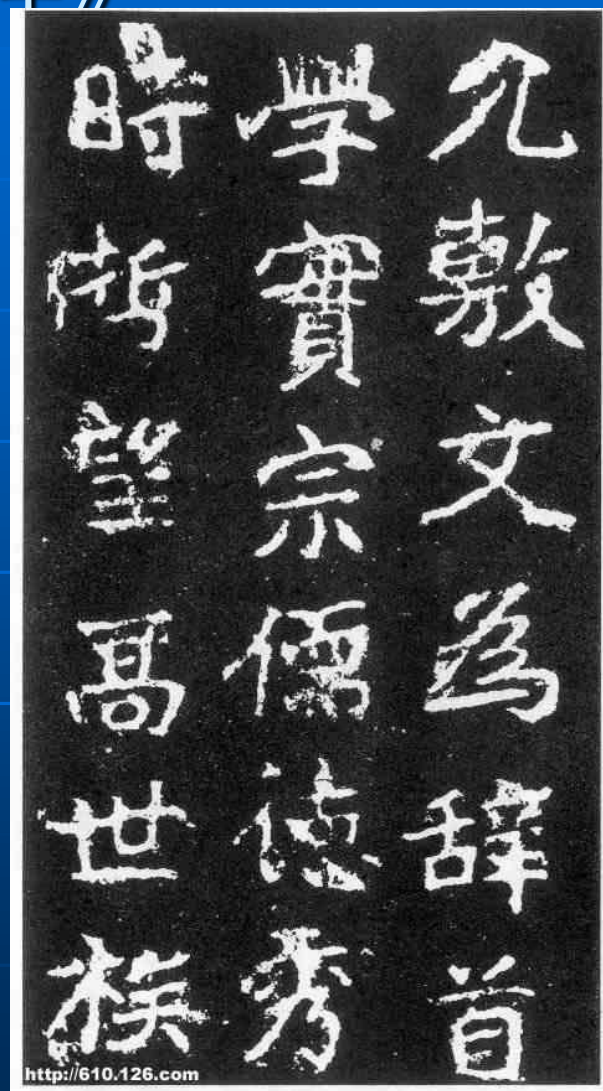 敷文為辞首
學實宗儒德秀
時哲望高世族
http://610.126.com